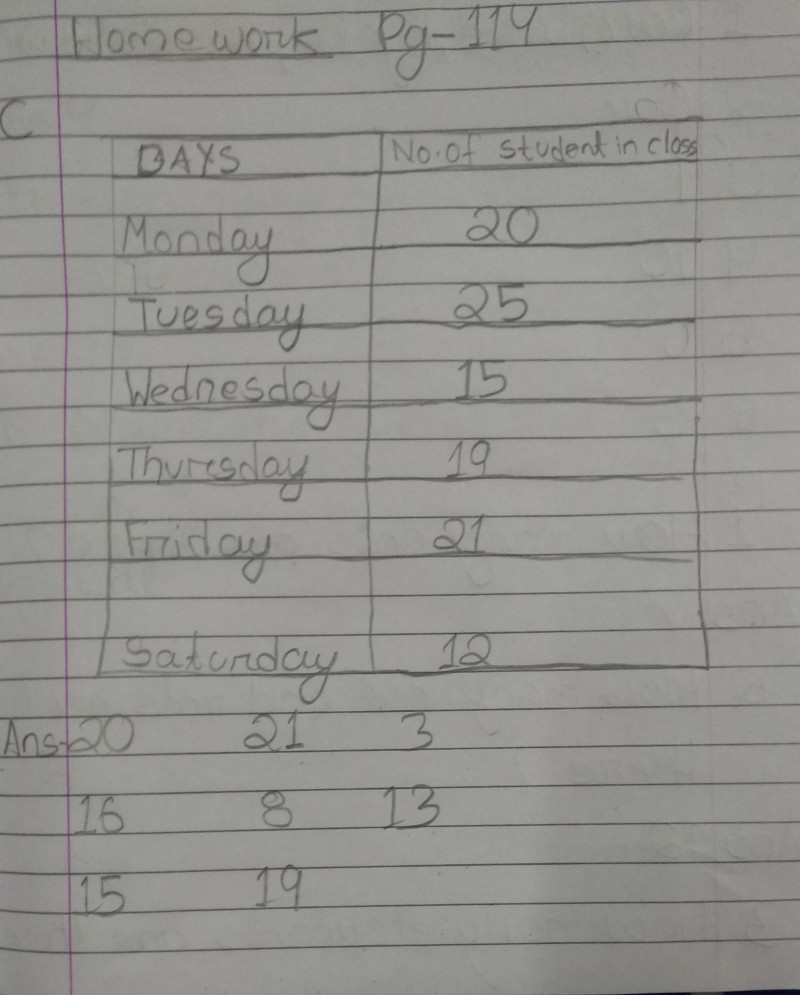 Homework Pg-114
C
DAYS No. of student in class
Monday 20
Tuesday 25
Wednesday 15
Thursday 19
Friday 21
Saturday 12
Ans- 20 21 3
16 8 13
15 19